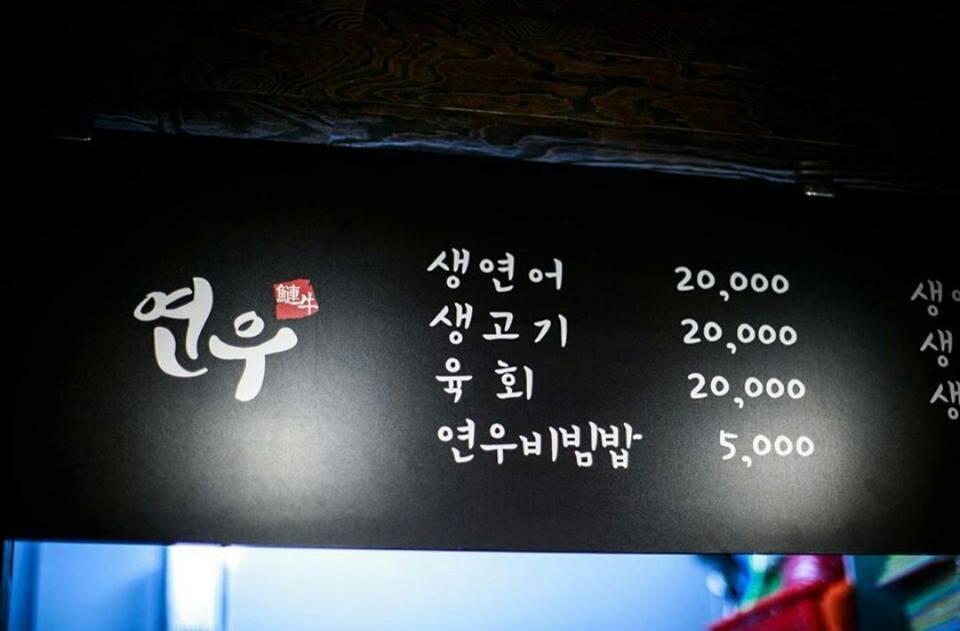 연우
鰱牛
생연어 20,000
생고기 20,000
육회 20,000
연우비빔밥 5,000
생
생
생